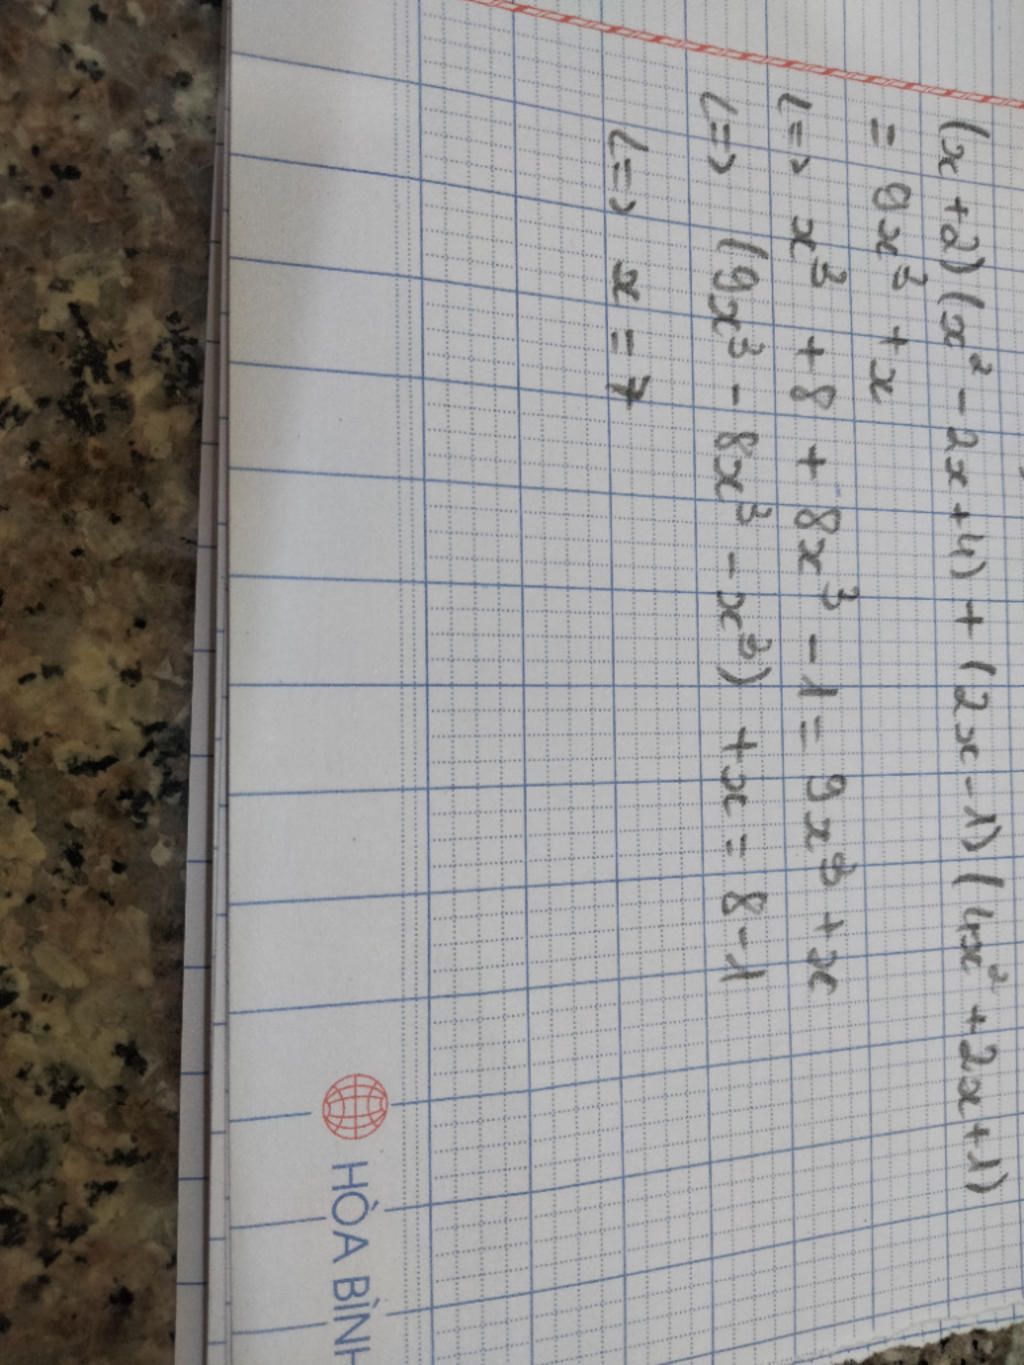 (x+2)(x² - 2x + 4) + (2x - 1)(4x² + 2x + 1)
= 9x³ + x
<=> x³ + 8 + 8x³ - 1 = 9x³ + x
<=> (9x³ - 8x³ - x³) + x = 8 - 1
<=> x = 7
HÒA BÌNH